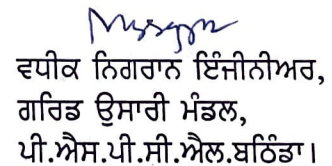 ਵਧੀਕ ਨਿਗਰਾਨ ਇੰਜੀਨੀਅਰ,
ਗਰਿਡ ਉਸਾਰੀ ਮੰਡਲ,
ਪੀ.ਐਸ.ਪੀ.ਸੀ.ਐਲ.ਬਠਿੰਡਾ।